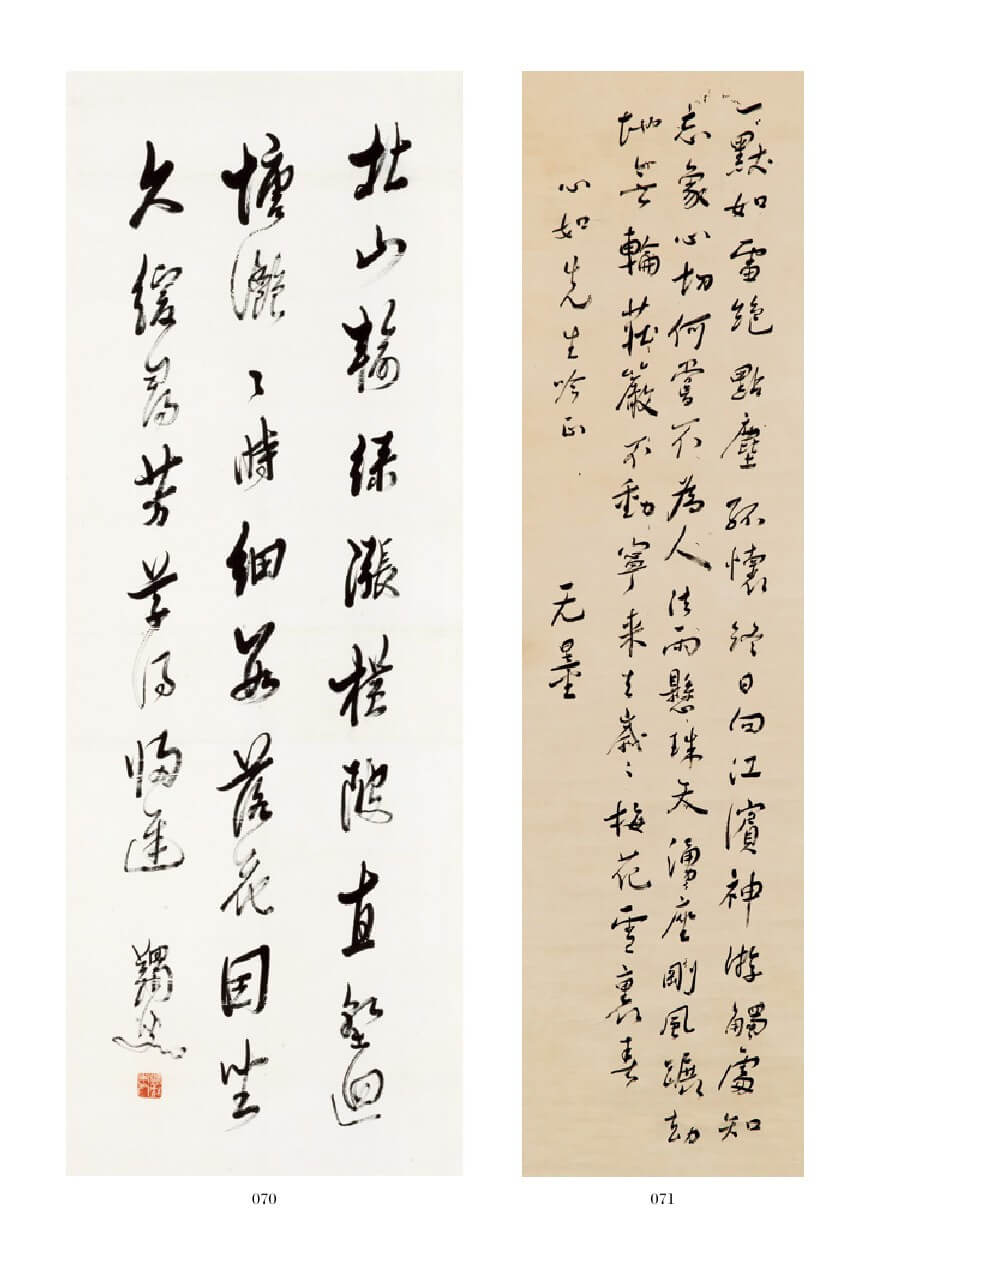 北山輸綠漲橫陂直塹迴
塘灩〻時細數落花因坐
久緩尋芳草得歸遲
070
一默如雷絕點塵孤懷終日向江濱神游觸處知
忘象心切何嘗不為人法雨懸珠天湧座剛風蹍劫
地無輪莊嚴不動寧來去歲〻梅花雪裏春
心如先生吟正
无量
071